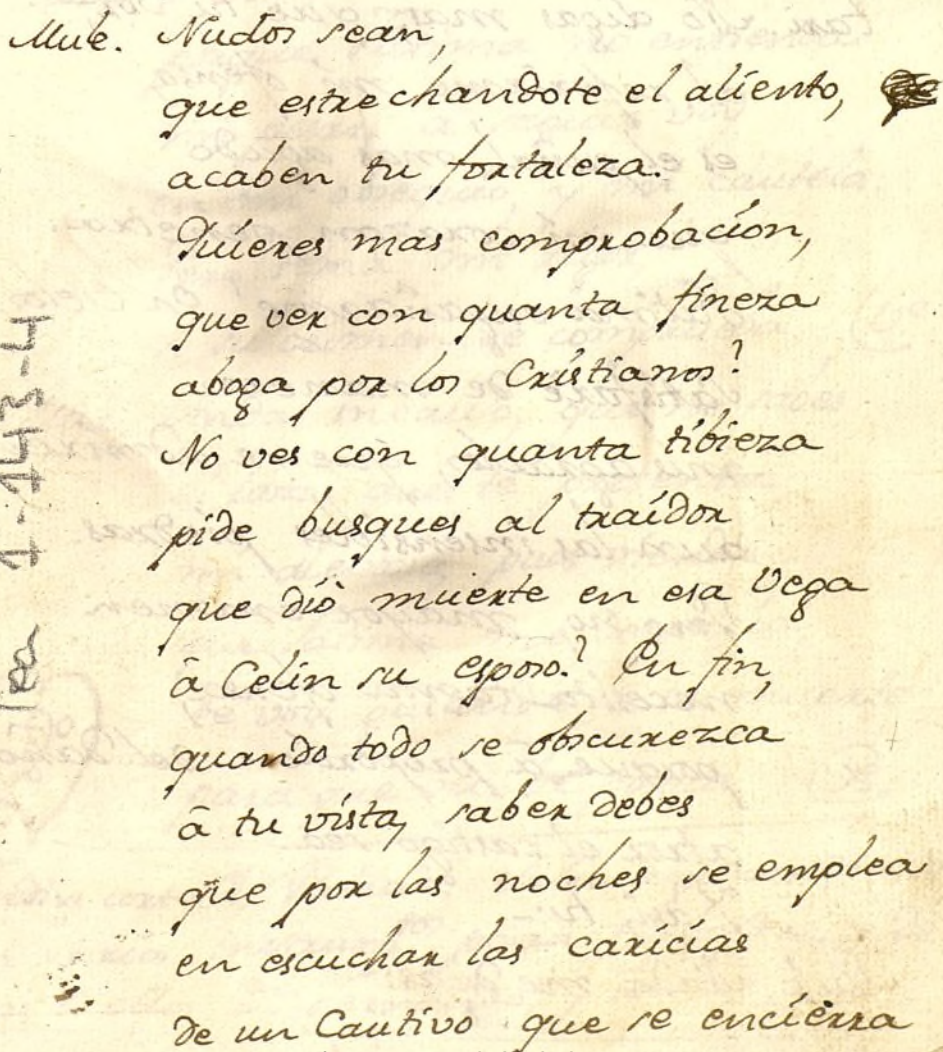 Mule. Nudos sean,
que estrechandote el aliento,
acaben tu fortaleza.
Quieres mas comprobacion,
que ver con quanta fineza
aboga por los Cristianos?
No ves con quanta tibieza
pide busques al traidor
que dió muerte en esa Vega
á Celin su esposo? En fin,
quando todo se obscurezca
á tu vista, saber debes
que por las noches se emplea
en escuchar las caricias
de un Cautivo que se encierra
1-143-4